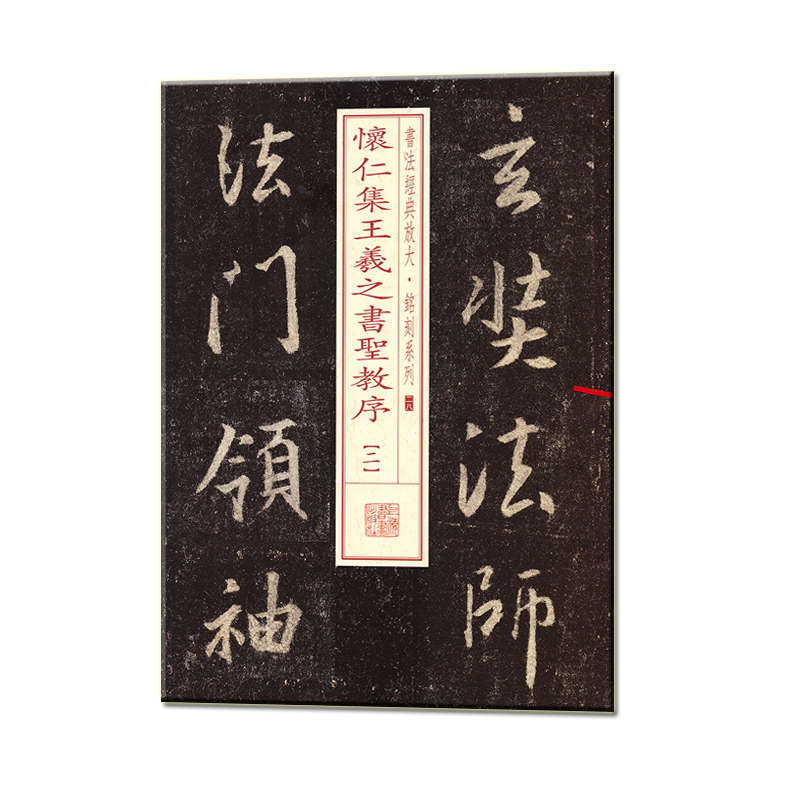 玄奘法師
書法經典放大·銘刻系列
二八
懷仁集王羲之書聖教序
【二】
法門領袖